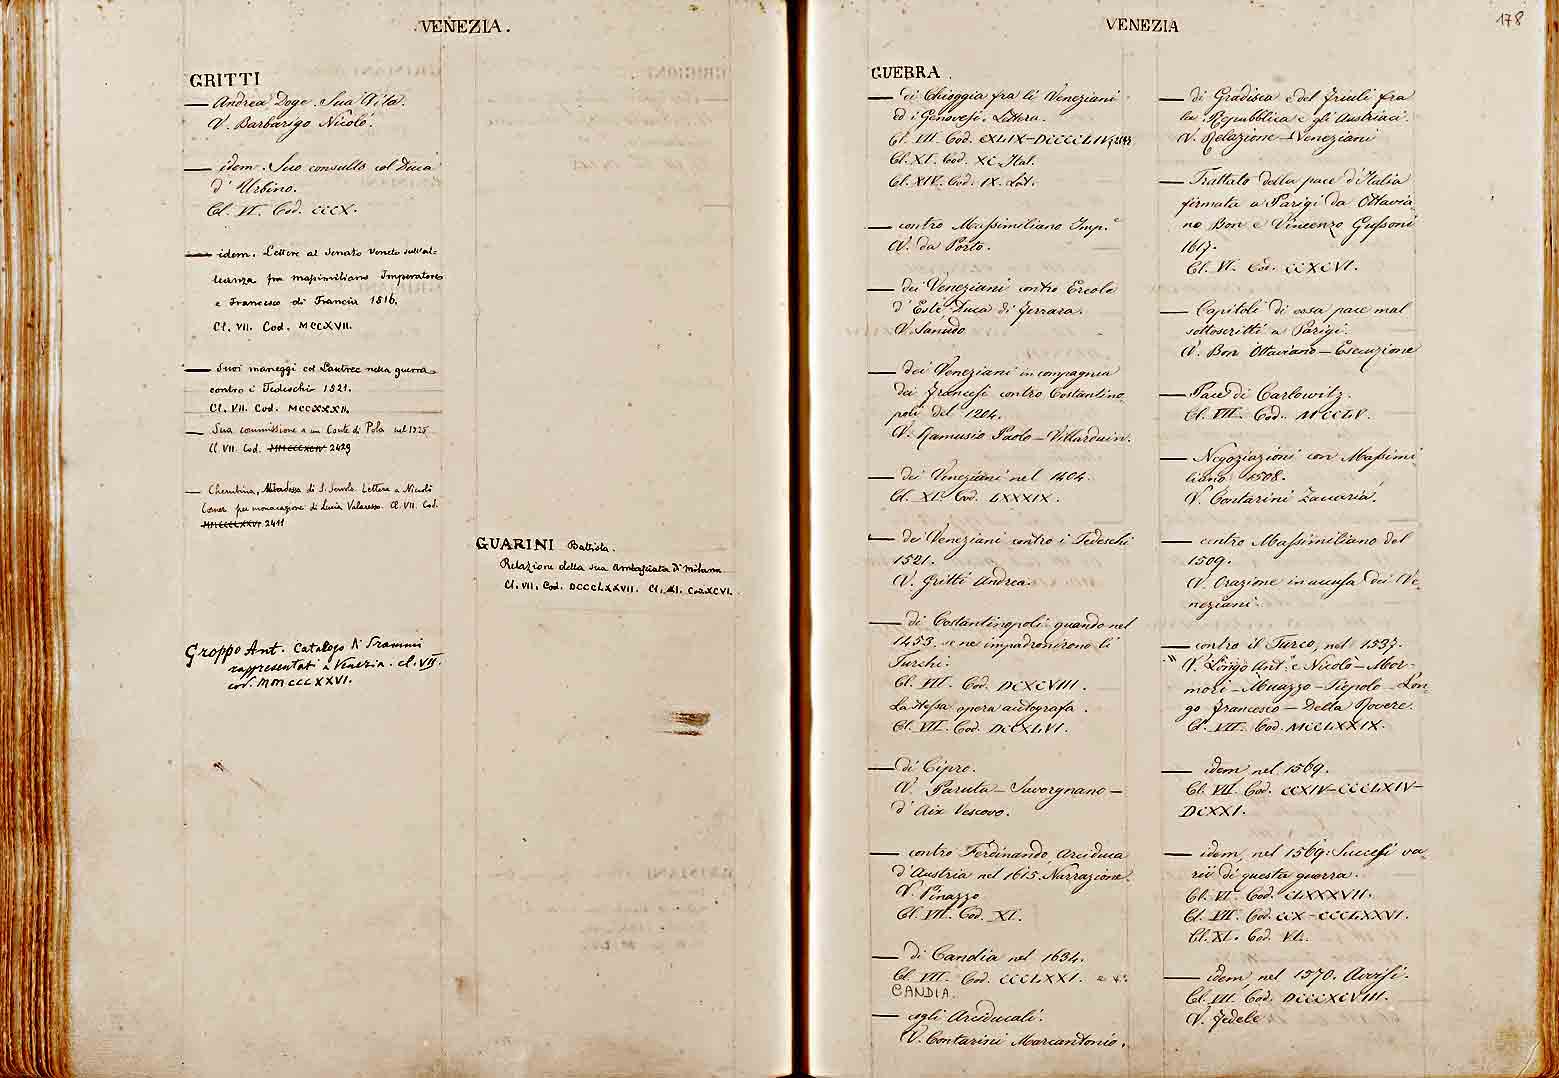 . VENEZIA .
GRITTI
— Andrea Doge. Sua Vita.
V. Barbarigo Nicolò.
— idem. Suo consulto col Duca
d' Urbino.
Cl. VI. Cod. CCCX.
— idem. Lettere al Senato Veneto sull'al-
leanza fra Massimiliano Imperatore
e Francesco di Francia 1516.
Cl. VII. Cod. MCCXVII.
— Suoi maneggi col Lautrec nella guerra
contro i Tedeschi 1521.
Cl. VII. Cod. MCCXXXII.
— Sua commissione a un Conte di Pola nel 1525
Cl. VII. Cod. 2429
— Cherubina, Abbadessa di S. Lettera a Nicolò
Corner per monacazione di Lucia Valaresso. Cl. VII. Cod.
MMCCCCXXVI 2411
Groppo Ant. Catalogo di Drammi
rappresentati a Venezia. cl. VII.
cod. MMCCCXXVI.
GUARINI Battista.
Relazione della sua Ambasciata di Milano
Cl. VII. Cod. DCCCLXXVII. Cl. XI. Cod. XCVI.
VENEZIA
178
GUERRA .
— di Chioggia fra li Veneziani
ed i Genovesi. Lettera.
Cl. VII. Cod. CXLIX-DCCCCLIV;
Cl. XI. Cod. XC Ital.
Cl. XIV. Cod. IX. Lat.
— contro Massimiliano Imp.e
V. da Porto.
— dei Veneziani contro Ercole
d' Este Duca di Ferrara.
V. Sanudo
— dei Veneziani in compagnia
dei Francesi contro Costantino
poli del 1204.
V. Ramusio Paolo — Villarduin.
— dei Veneziani nel 1404.
Cl. XI. Cod. LXXXIX.
— dei Veneziani contro i Tedeschi
1521.
V. Gritti Andrea.
— di Costantinopoli quando nel
1453 se ne impadronirono li
Turchi.
Cl. VII. Cod. DCXCVIII.
La stessa opera autografa .
Cl. VII. Cod. DCCXLVI.
— di Cipro.
V. Paruta — Savorgnano —
d' Aix Vescovo.
— contro Ferdinando Arciduca
d' Austria nel 1615. Narrazione.
V. Pinazzo
Cl. VII. Cod. XI.
— di Candia nel 1634.
Cl. VII. Cod. CCCLXXI.
CANDIA.
— cogli Arciducali.
V. Contarini Marcantonio.
— di Gradisca e del Friuli fra
la Repubblica e gli Austriaci.
V. Relazione — Veneziani
— Trattato della pace d'Italia
firmata a Parigi da Ottavia-
no Bon e Vincenzo Gussoni
1617.
Cl. VI. Cod. CCXCVI.
— Capitoli di essa pace mal
sottoscritti a Parigi.
V. Bon Ottaviano — Escuzione
— Pace di Carlowitz.
Cl. VII. Cod. MCCLV.
— Negoziazioni con Massimi-
liano 1508.
V. Contarini Zaccaria.
— contro Massimiliano del
1509.
V. Orazione in accusa dei Ve-
neziani.
— contro il Turco, nel 1537.
V. Longo Ant.o e Nicolò — Mor-
mori — Muazzo — Tiepolo — Lon-
go Francesco — Della Rovere.
Cl. VII. Cod. MCCLXXIX.
— idem nel 1569.
Cl. VII. Cod. CCXIV-CCCLXIV-
DCXXI.
— idem, nel 1569: Successi va-
rii di questa guerra.
Cl. VI. Cod. CLXXXVII.
Cl. VII. Cod. CCX-CCCLXXVI.
Cl. XI. Cod. VL.
— idem, nel 1570. Avvisi.
Cl. VII. Cod. DCCCXCVIII.
V. Fedele